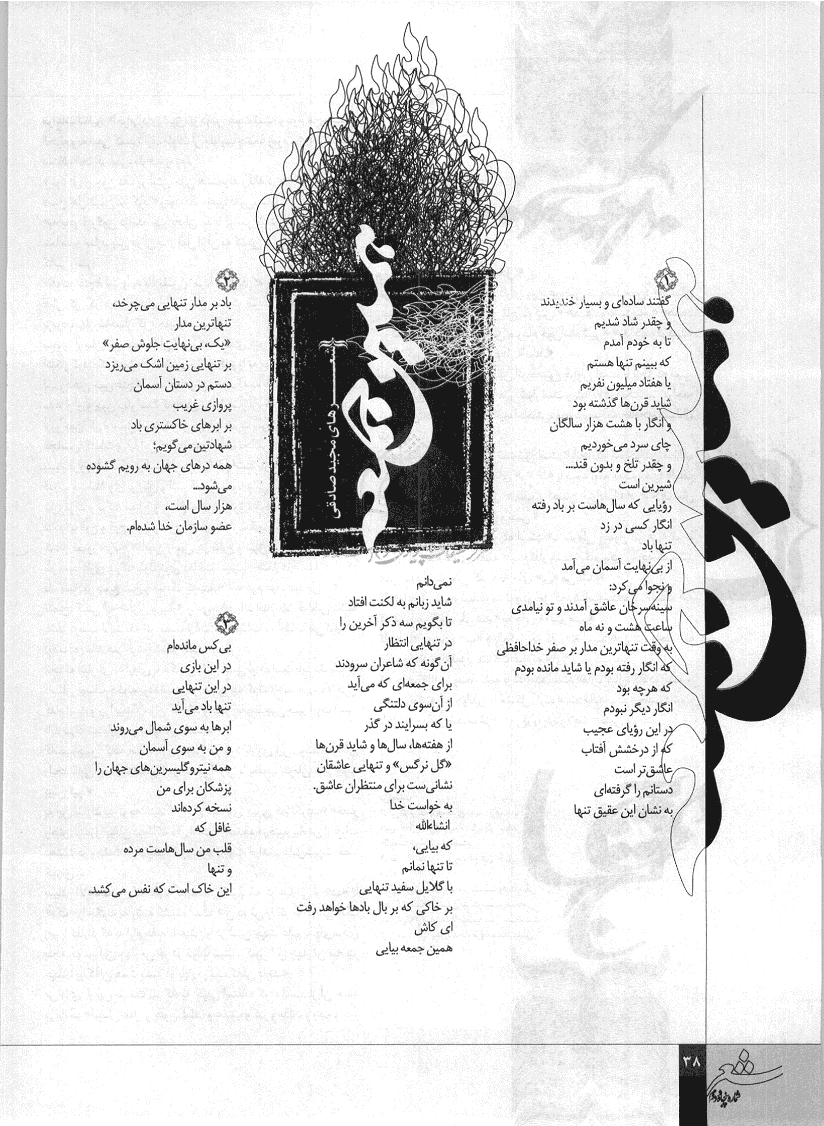 همین جمعه
شعرهای مجید صادقی
۱
گفتند ساده‌ای و بسیار خندیدند
و چقدر شاد شدیم
تا به خودم آمدم
که ببینم تنها هستم
یا هفتاد میلیون نفریم
شاید قرن‌ها گذشته بود
و انگار با هشت هزار سالگان
چای سرد می‌خوردیم
و چقدر تلخ و بدون قند...
شیرین است
رؤیایی که سال‌هاست بر باد رفته
انگار کسی در زد
تنها باد
از بی‌نهایت آسمان می‌آمد
و نجوا می‌کرد:
سینه‌سرخان عاشق آمدند و تو نیامدی
ساعت هشت و نه ماه
به وقت تنهاترین مدار بر صفر خداحافظی
که انگار رفته بودم یا شاید مانده بودم
که هرچه بود
انگار دیگر نبودم
در این رؤیای عجیب
که از درخشش آفتاب
عاشق‌تر است
دستانم را گرفته‌ای
به نشان این عقیق تنها
نمی‌دانم
شاید زبانم به لکنت افتاد
تا بگویم سه ذکر آخرین را
در تنهایی انتظار
آن‌گونه که شاعران سرودند
برای جمعه‌ای که می‌آید
از آن‌سوی دلتنگی
یا که بسرایند در گذر
از هفته‌ها، سال‌ها و شاید قرن‌ها
«گل نرگس» و تنهایی عاشقان
نشانی‌ست برای منتظران عاشق.
به خواست خدا
انشاءالله
که بیایی،
تا تنها نمانم
با گلایل سفید تنهایی
بر خاکی که بر بال بادها خواهد رفت
ای کاش
همین جمعه بیایی
۲
باد بر مدار تنهایی می‌چرخد،
تنهاترین مدار
«یک، بی‌نهایت جلوش صفر»
بر تنهایی زمین اشک می‌ریزد
دستم در دستان آسمان
پروازی غریب
بر ابرهای خاکستری باد
شهادتین می‌گویم؛
همه درهای جهان به رویم گشوده
می‌شود...
هزار سال است،
عضو سازمان خدا شده‌ام.
۳
بی‌کس مانده‌ام
در این بازی
در این تنهایی
تنها باد می‌آید
ابرها به سوی شمال می‌روند
و من به سوی آسمان
همه نیتروگلیسرین‌های جهان را
پزشکان برای من
نسخه کرده‌اند
غافل که
قلب من سال‌هاست مرده
و تنها
این خاک است که نفس می‌کشد.
۳۸
شعر